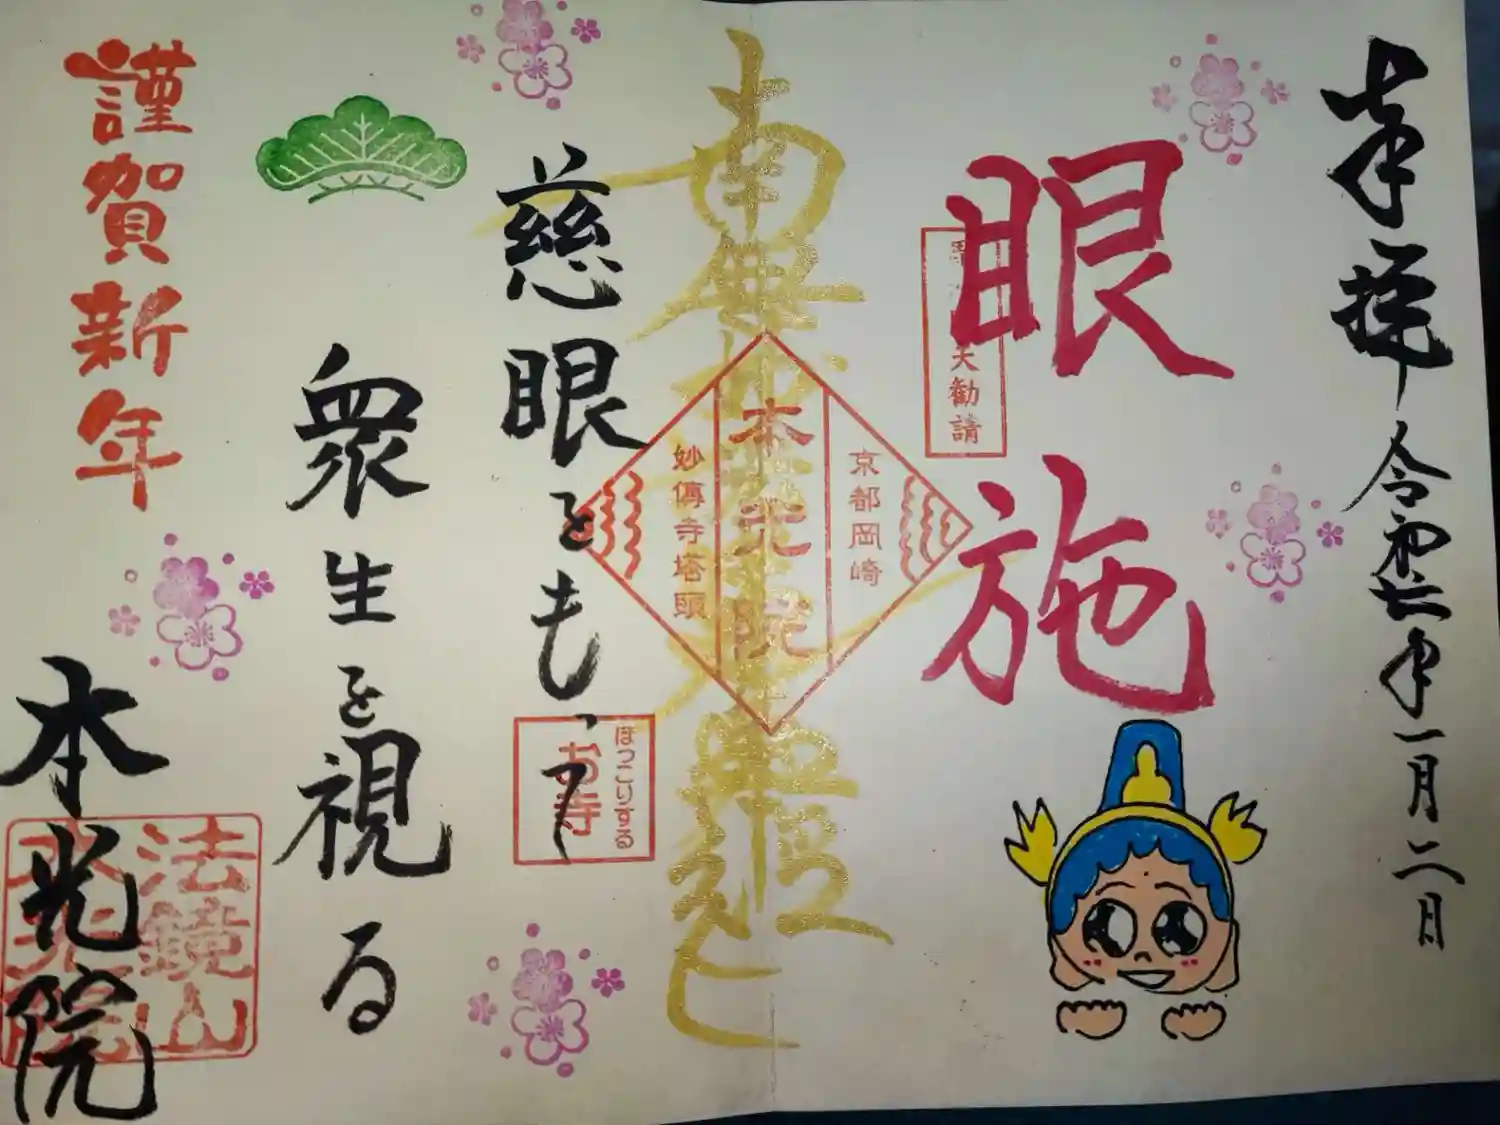 奉拝 令和六年一月二日
眼施
天勧請
南無妙法蓮華経
京都岡崎
本光院
妙傳寺塔頭
慈眼をもって
ほっこりする
お寺
衆生を視る
謹賀新年
本光院
法鏡山
本光院